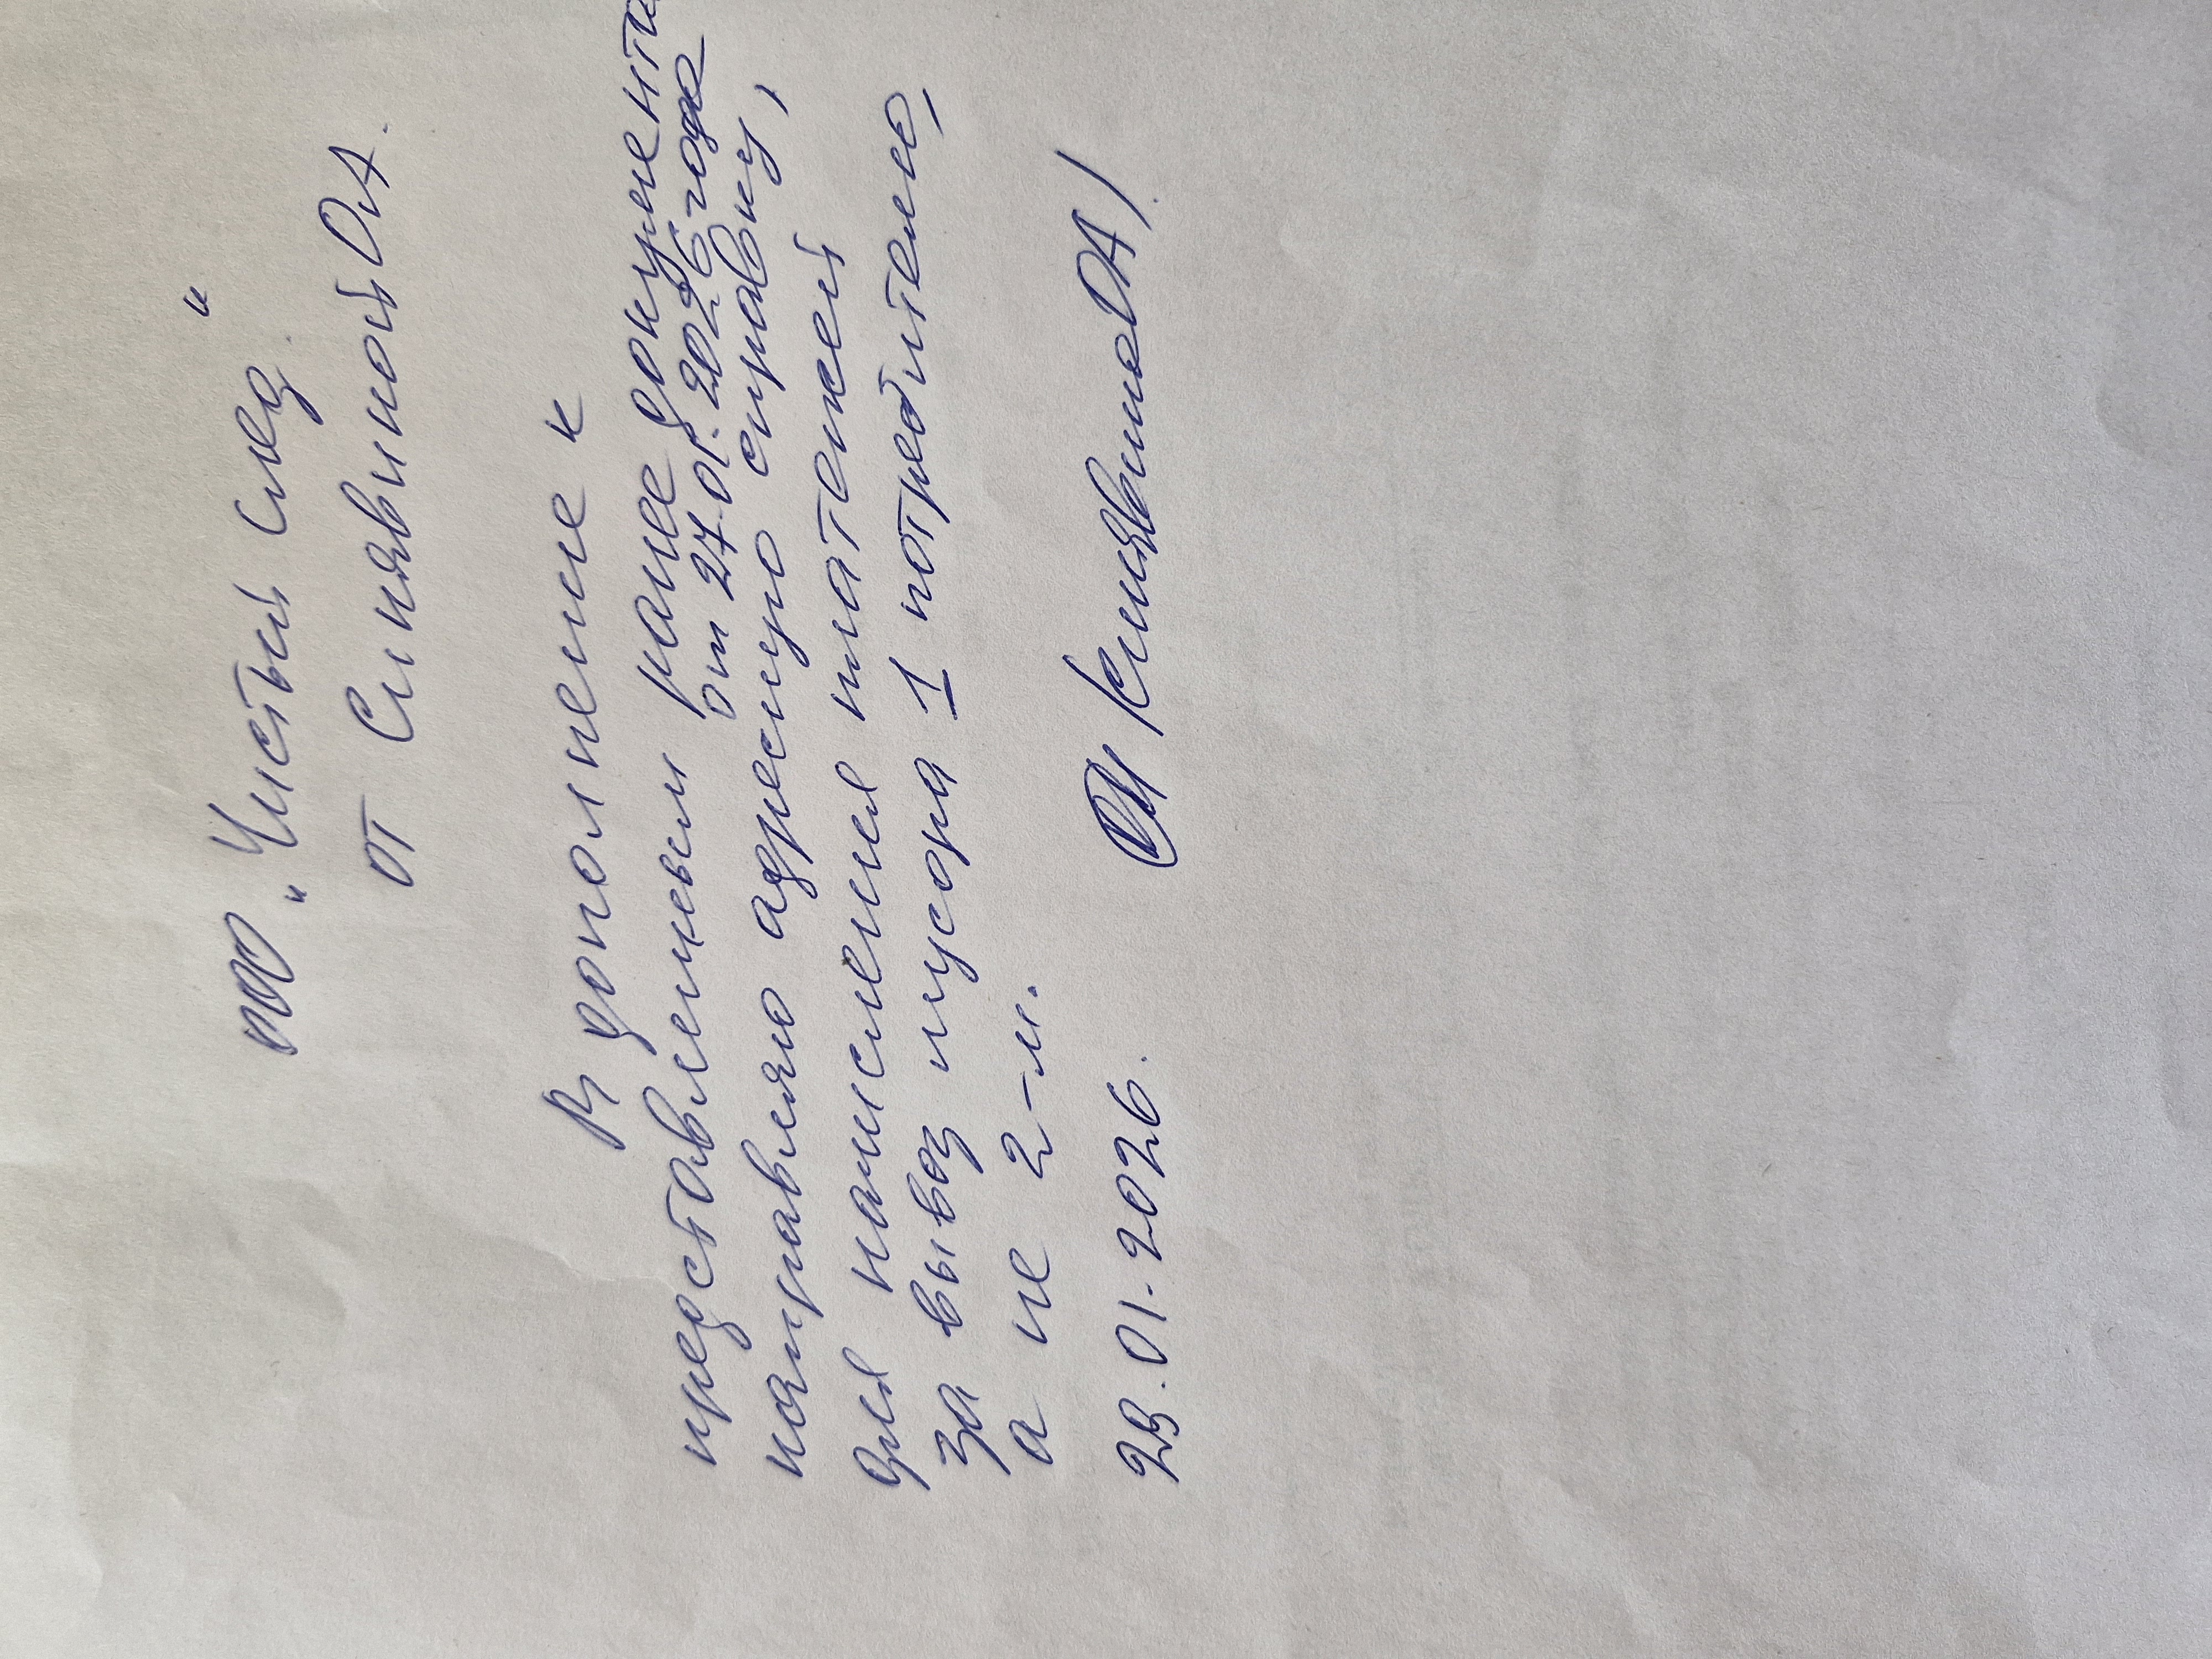 ТОО "Чистый след"
от Синявиной О.А.
В дополнение к
представленным ранее документа
от 27.01.2026 года
направляю адресную справку,
для начисления платежей
за вывоз мусора 1 потребителю,
а не 2-м.
29.01.2026. /Синявина ОА/